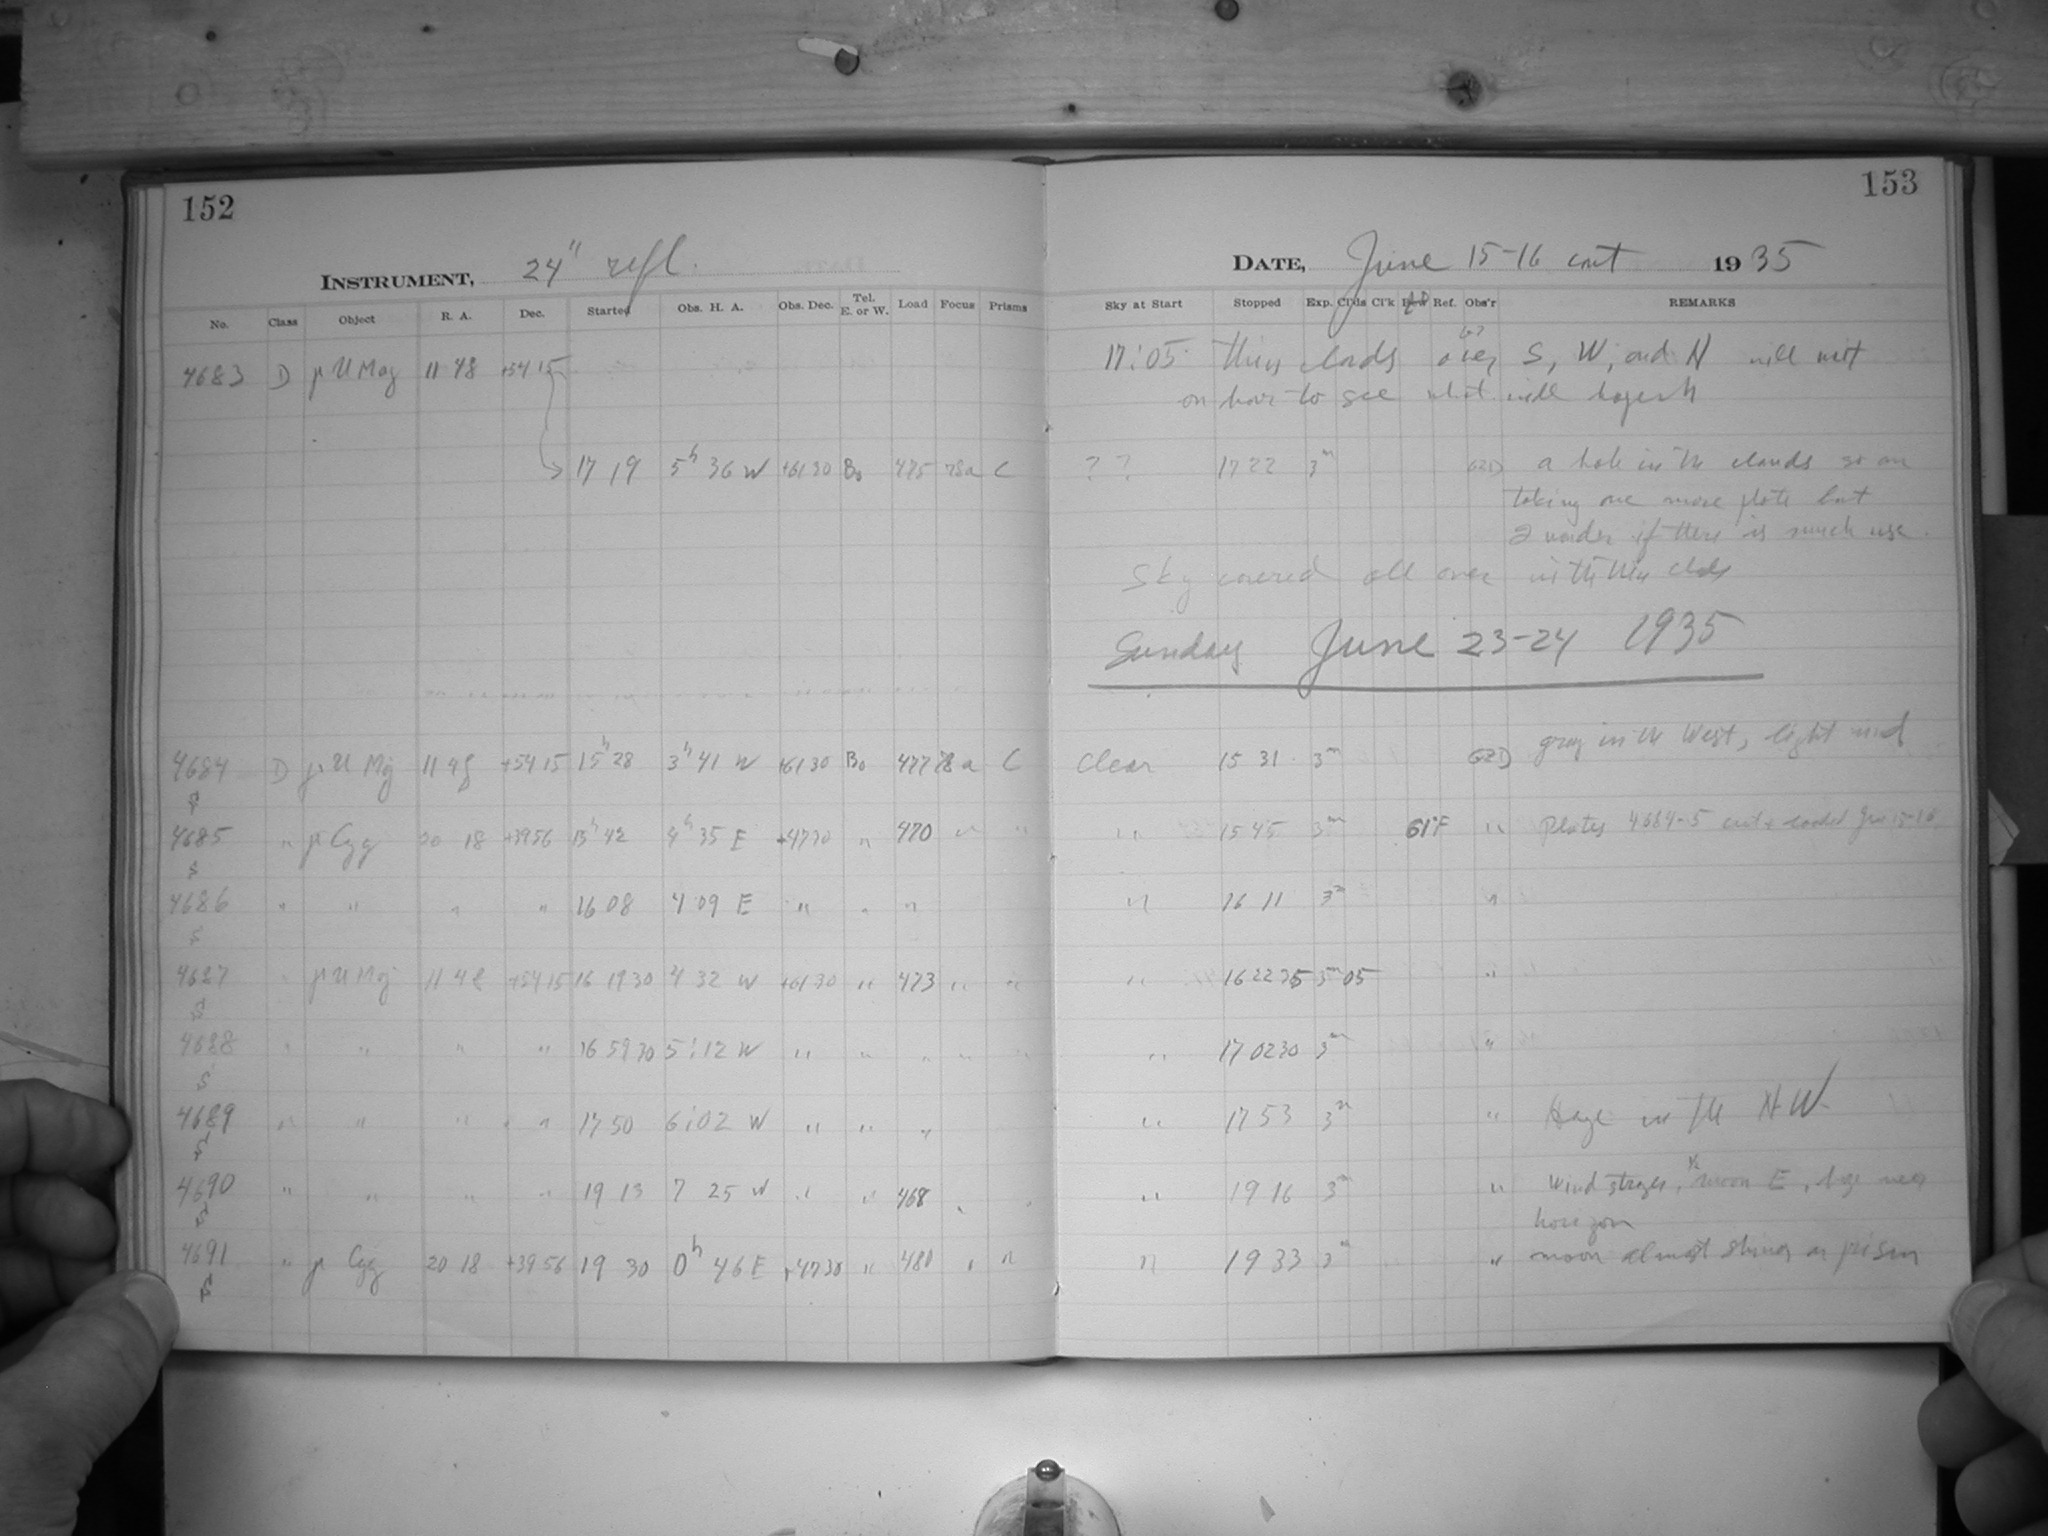 152
153
INSTRUMENT, 24" refl.
DATE, June 15-16 cont 1935
No. Class Object R. A. Dec. Started Obs. H. A. Obs. Dec. Tel. E. or W. Load Focus Prisms Sky at Start Stopped Exp. Cl'ds Cl'k Ref. Obs'r REMARKS
4683 D μ U Maj 11 48 +54 15 17:05 thin clouds over S, W, and N will wait
an hour to see what will happen
17 19 5h 36 W +61 30 Bo 475 78a C ? ? 17 22 3m GZD a hole in the clouds so am
taking one more plate but
I wonder if there is much use.
Sky covered all over with thin clds
Sunday June 23-24 1935
4684 D μ U Maj 11 48 +54 15 15h 28 3h 41 W +61 30 Bo 477 78a C Clear 15 31 3m GZD gray in the West, light wind
S
4685 " μ Cyg 20 18 +39 56 15h 42 4h 35 E +47 30 " 470 " " " 15 45 3m 61°F " Plates 4684-5 cut & loaded June 15-16
S
4686 " " " " 16 08 4 09 E " " " " 16 11 3m "
S
4687 " μ U Maj 11 48 +54 15 16 19 30 4 32 W +61 30 " 473 " " " 16 22 35 3m 05 "
S
4688 " " " " 16 59 30 5:12 W " " " " " " 17 02 30 3m "
S
4689 " " " " 17 50 6:02 W " " " " 17 53 3m " Haze in the NW
S
4690 " " " " 19 13 7 25 W " " 468 " " " 19 16 3m " Wind stronger, 1/2 moon E, haze near
horizon
S
4691 " μ Cyg 20 18 +39 56 19 30 0h 46 E +47 30 " 480 " " " 19 33 3m " moon almost shines on prism
S